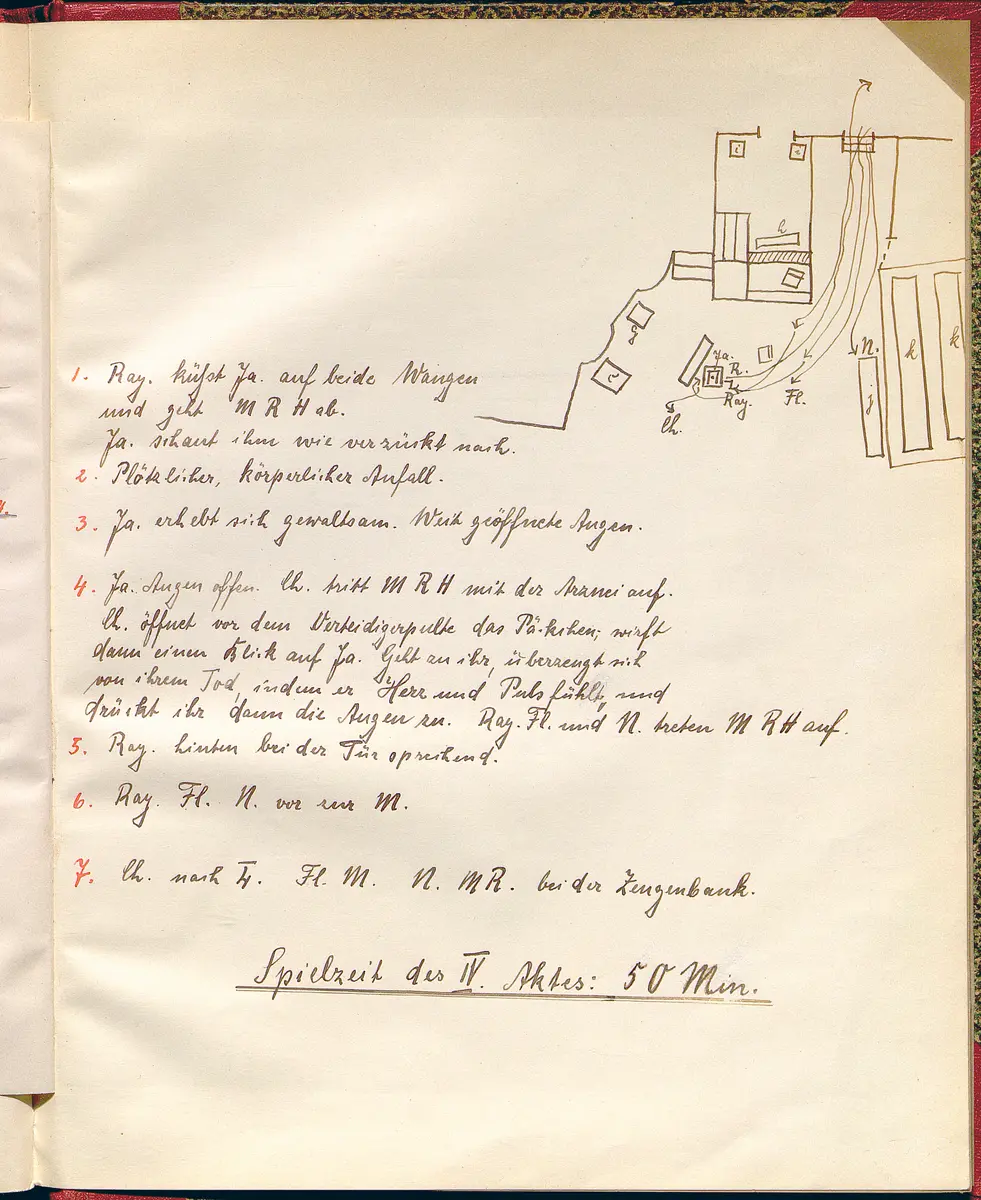 i
i
h
g
e
Ja.
R.
L.
Ray.
Ch.
Fl.
N.
j
k
k
1. Ray. küßt Ja. auf beide Wangen
und geht M R H ab.
Ja. schaut ihm wie verzückt nach.
2. Plötzlicher, körperlicher Anfall.
3. Ja. erhebt sich gewaltsam. Weit geöffnete Augen.
4. Ja. Augen offen. Ch. tritt M R H mit der Arznei auf.
Ch. öffnet vor dem Verteidigerpulte das Päckchen; wirft
dann einen Blick auf Ja. Geht zu ihr, überzeugt sich
von ihrem Tod, indem er Herz und Puls fühlt, und
drückt ihr dann die Augen zu. Ray. Fl. und N. treten M R H auf.
5. Ray. hinten bei der Tür sprechend.
6. Ray. Fl. N. vor zur M.
7. Ch. nach L. Fl. M. N. MR. bei der Zeugenbank.
Spielzeit des IV. Aktes: 50 Min.